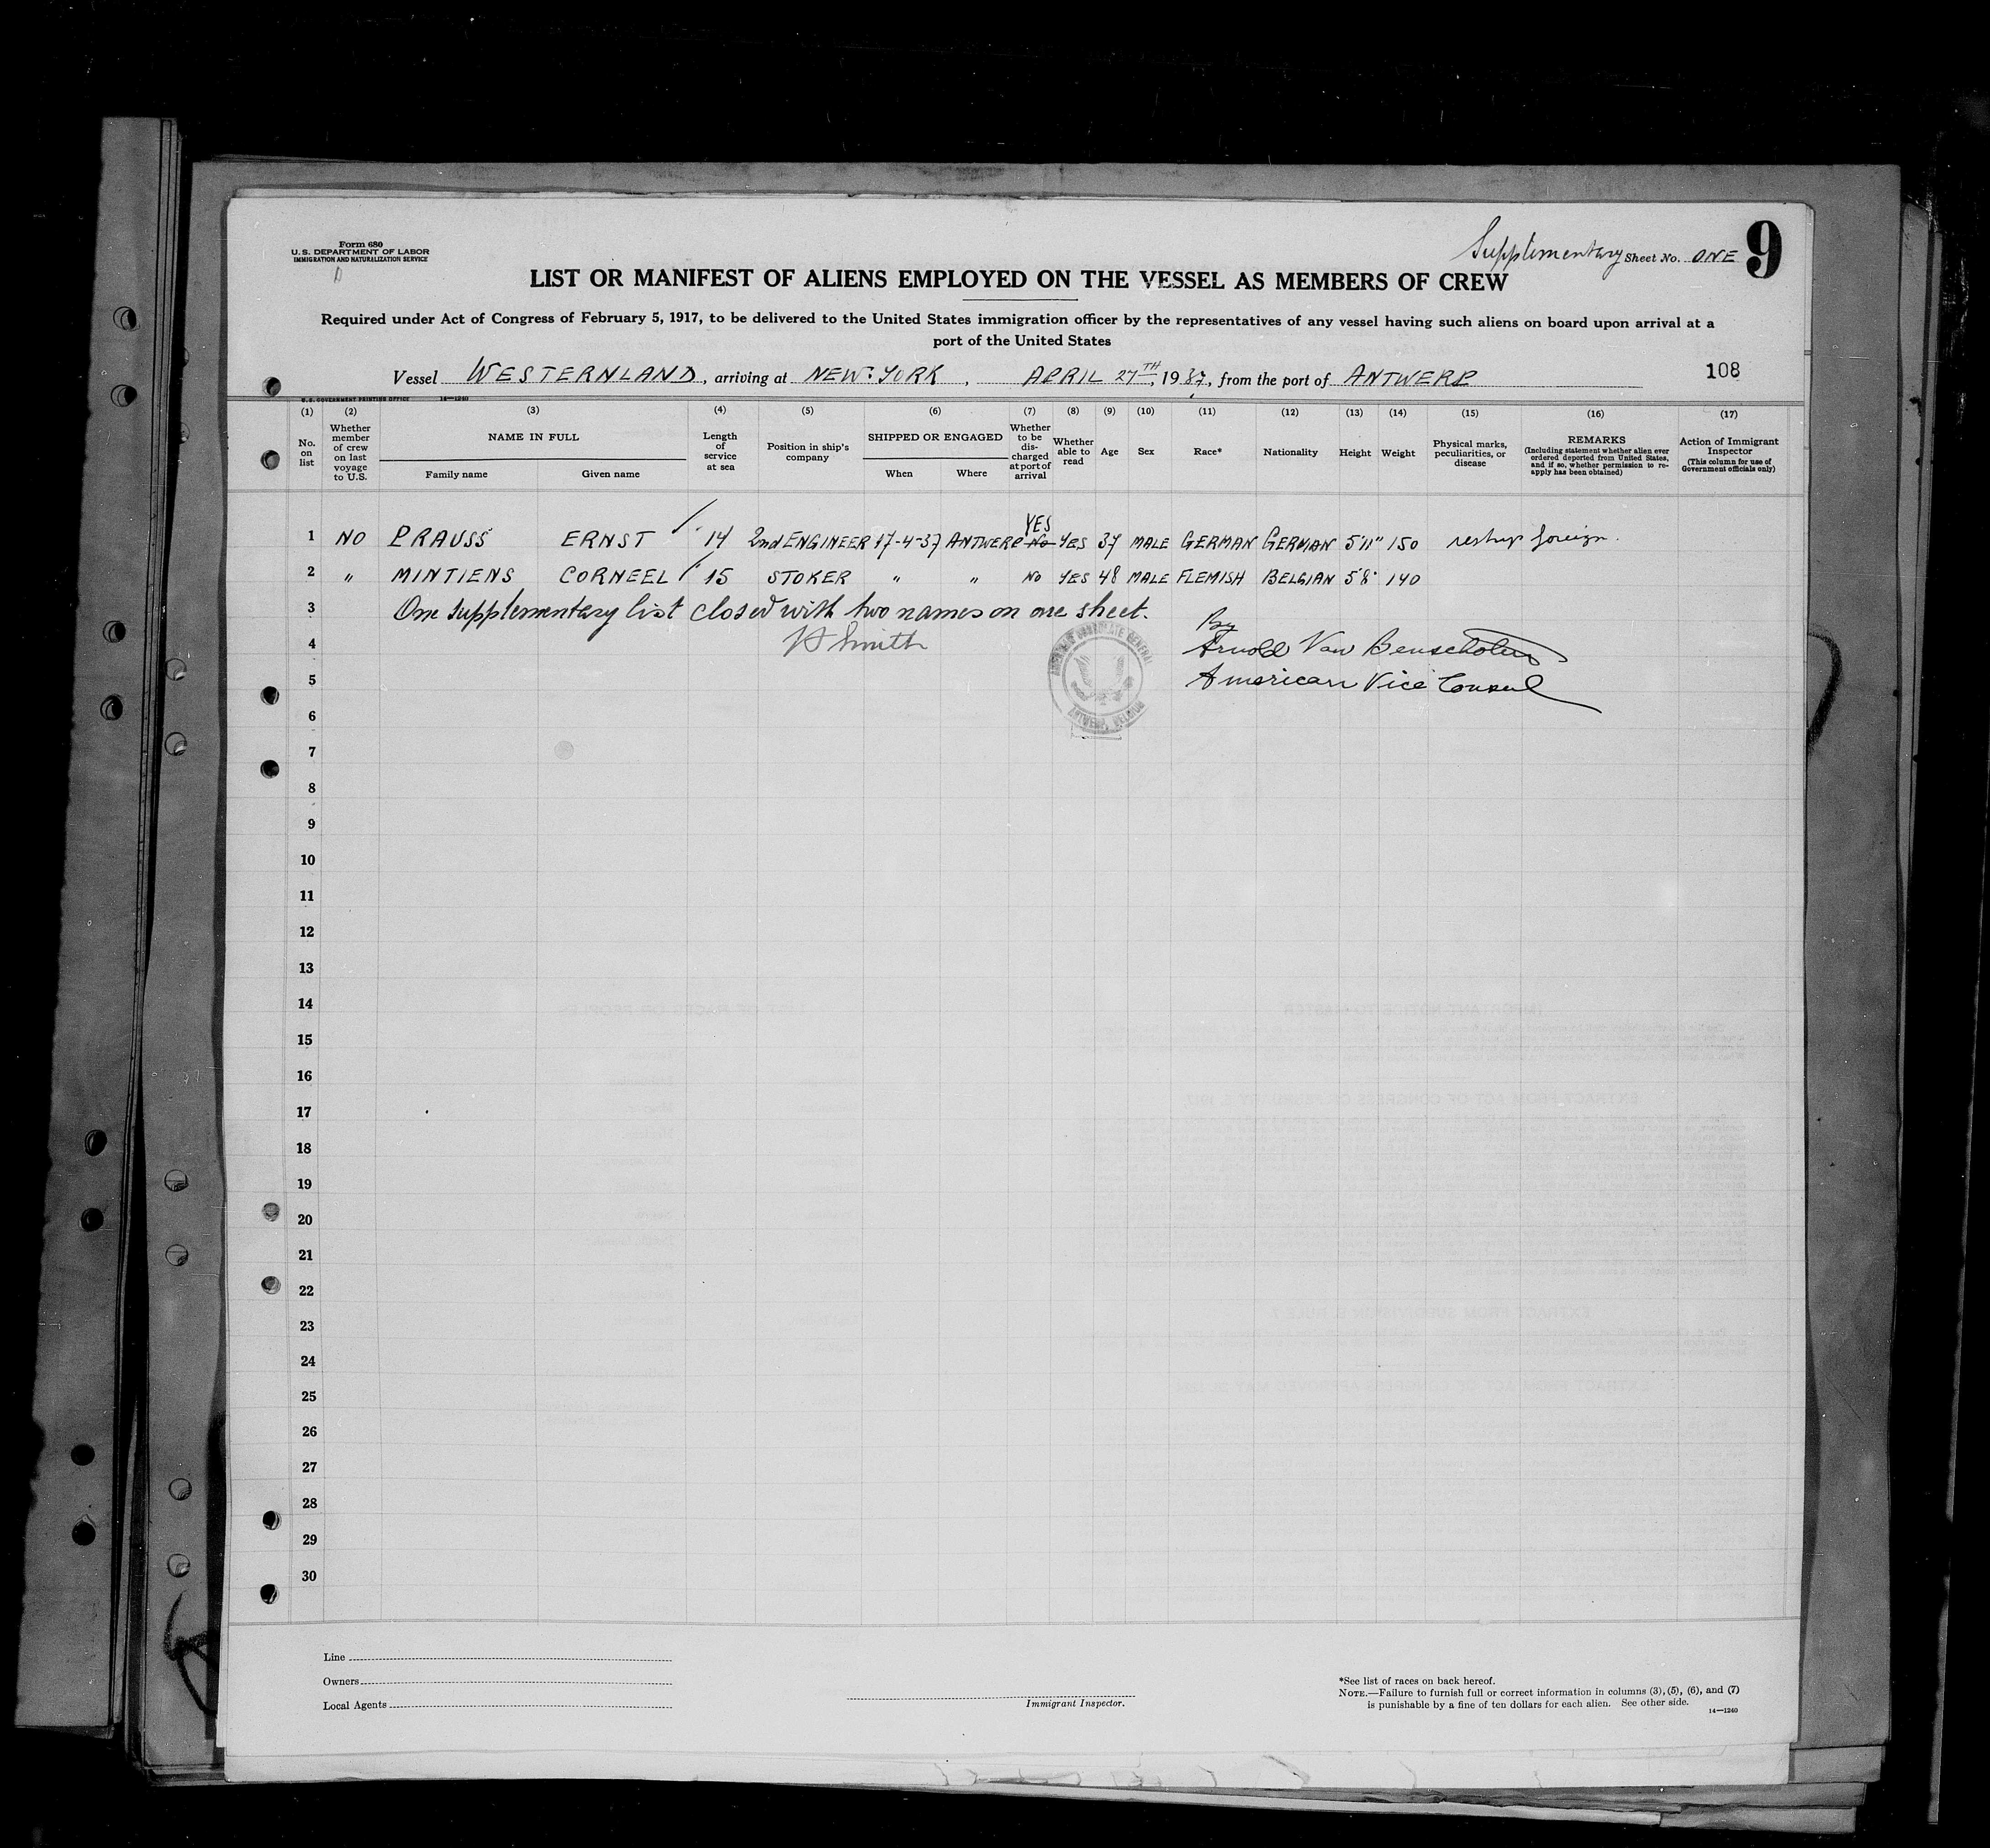 Form 680
U. S. DEPARTMENT OF LABOR
IMMIGRATION AND NATURALIZATION SERVICE
Supplementary Sheet No. ONE 9
LIST OR MANIFEST OF ALIENS EMPLOYED ON THE VESSEL AS MEMBERS OF CREW
Required under Act of Congress of February 5, 1917, to be delivered to the United States immigration officer by the representatives of any vessel having such aliens on board upon arrival at a
port of the United States
Vessel WESTERNLAND, arriving at NEW YORK, APRIL 27TH, 1937, from the port of ANTWERP
108
U. S. GOVERNMENT PRINTING OFFICE 14—1240
(1) (2) (3) (4) (5) (6) (7) (8) (9) (10) (11) (12) (13) (14) (15) (16) (17)
No. on list
Whether member of crew on last voyage to U.S.
NAME IN FULL
Family name
Given name
Length of service at sea
Position in ship's company
SHIPPED OR ENGAGED
When
Where
Whether to be discharged at port of arrival
Whether able to read
Age
Sex
Race*
Nationality
Height
Weight
Physical marks, peculiarities, or disease
REMARKS
(Including statement whether alien ever ordered deported from United States, and if so, whether permission to reapply has been obtained)
Action of Immigrant Inspector
(This column for use of Government officials only)
YES
1 NO PRAUSS ERNST 14 2nd ENGINEER 17-4-37 ANTWERP No YES 37 MALE GERMAN GERMAN 5'11" 150 reship foreign.
2 " MINTIENS CORNEEL 15 STOKER " " No YES 48 MALE FLEMISH BELGIAN 5'8" 140
3 One supplementary list closed with two names on one sheet.
By
4 Smith Arnold Van Benschoten
AMERICAN CONSULATE GENERAL
ANTWERP, BELGIUM
5 American Vice Consul
6
7
8
9
10
11
12
13
14
15
16
17
18
19
20
21
22
23
24
25
26
27
28
29
30
Line
Owners
Local Agents
Immigrant Inspector.
*See list of races on back hereof.
NOTE.—Failure to furnish full or correct information in columns (3), (5), (6), and (7)
is punishable by a fine of ten dollars for each alien. See other side.
14—1240